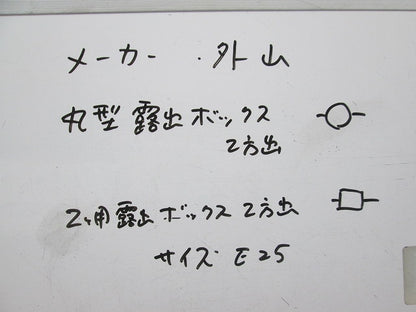 メーカー ・外山
丸型露出ボックス
2方出
2ヶ用露出ボックス2方出
サイズ E25